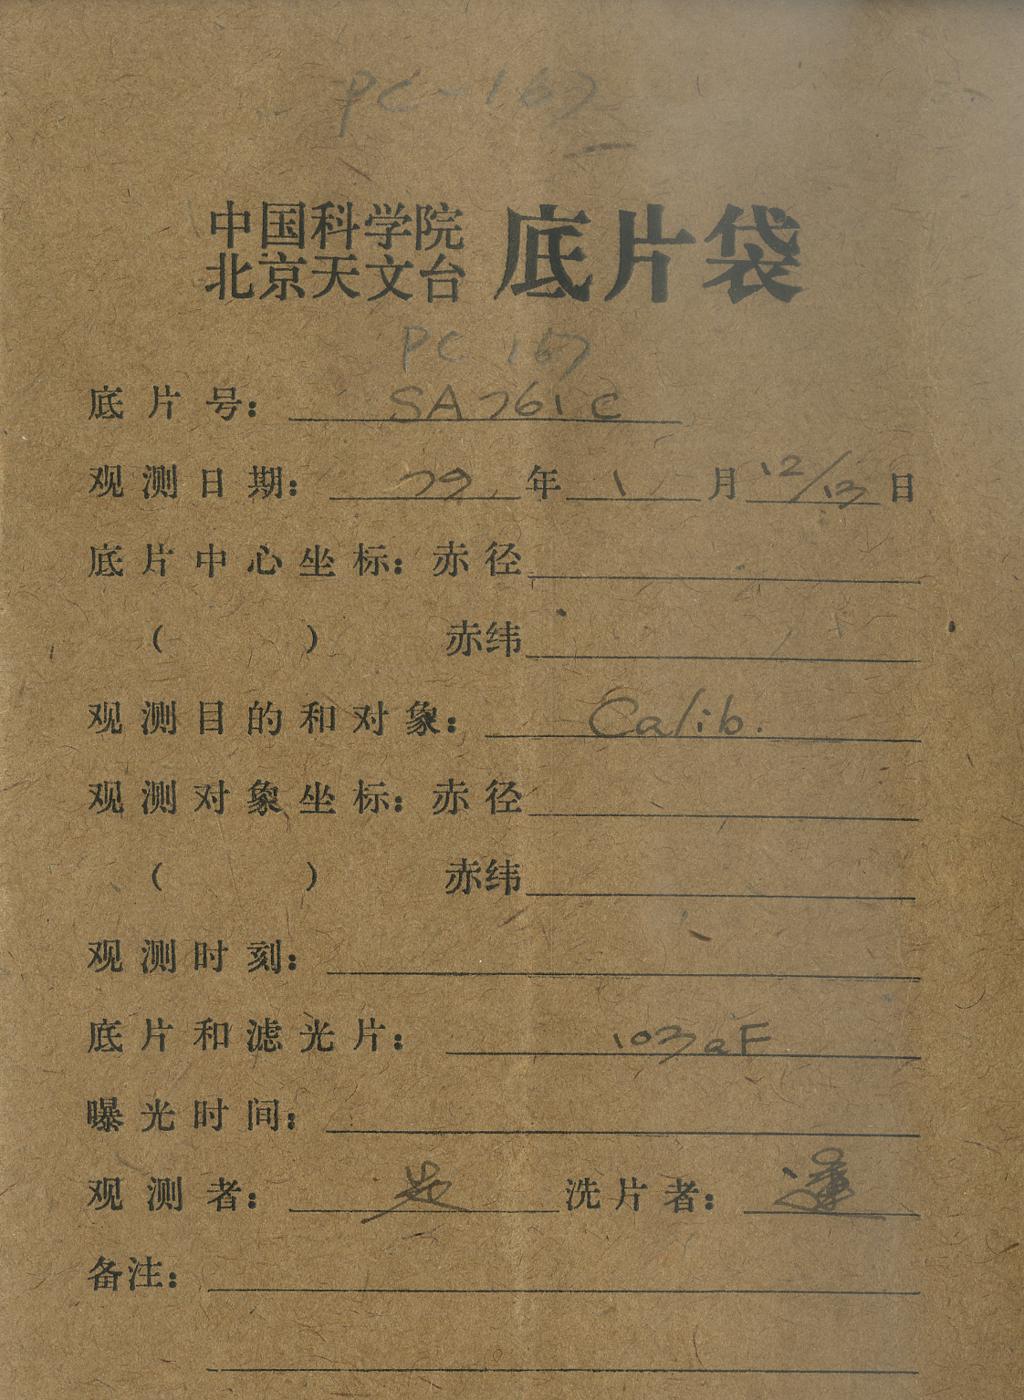 PC-167
中国科学院
北京天文台 底片袋
PC 167
底片号: SA761C
观测日期: 79年1月12/13日
底片中心坐标: 赤径
( ) 赤纬
观测目的和对象: Calib.
观测对象坐标: 赤径
( ) 赤纬
观测时刻:
底片和滤光片: 103aF
曝光时间:
观测者: 洗片者:
备注: